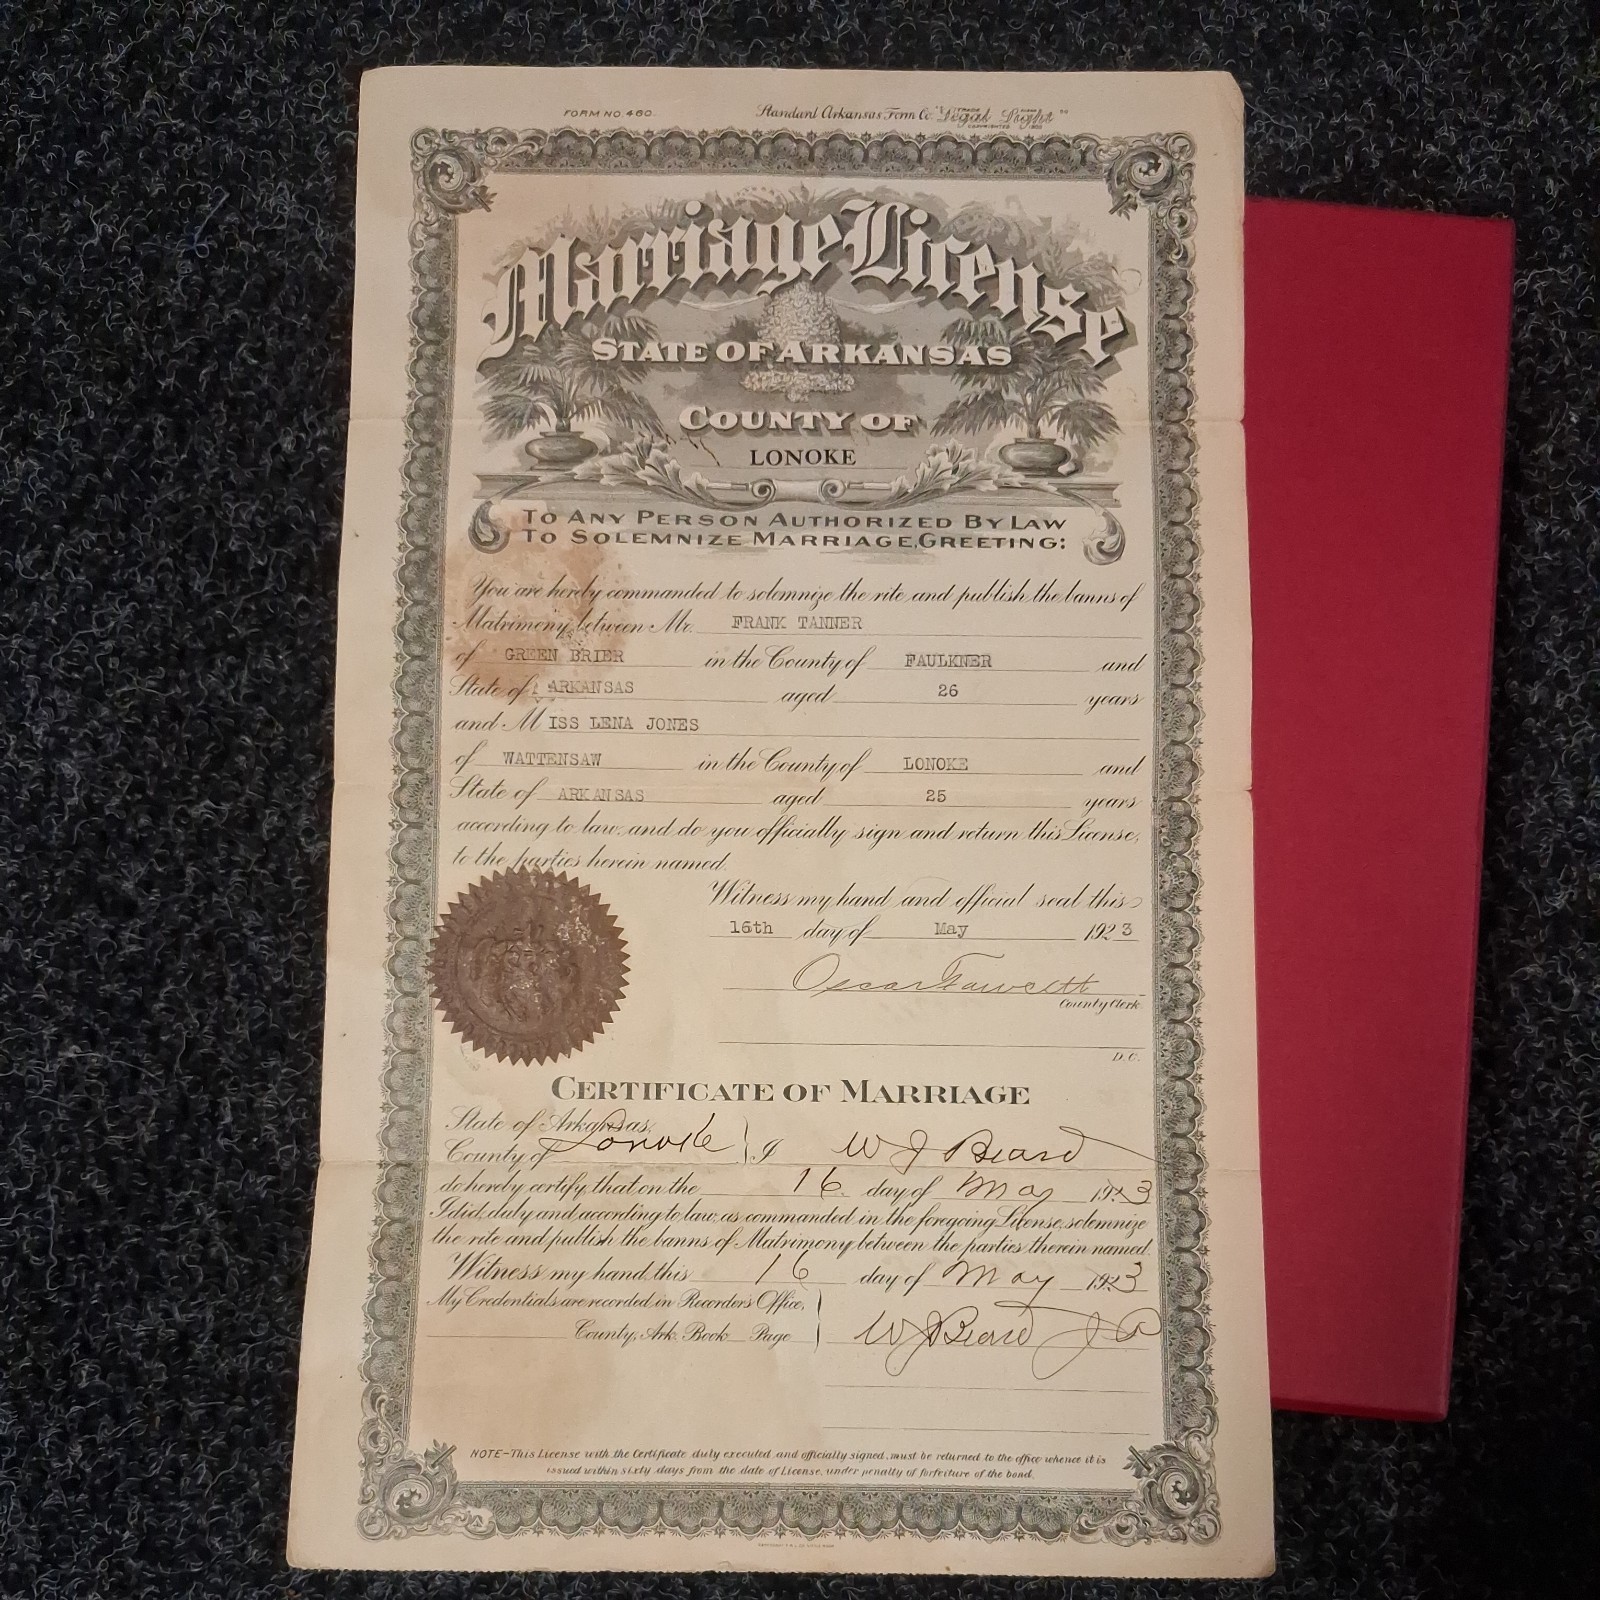 FORM NO. 460. Standard Arkansas Form Co. TRADE MARK
Marriage License
STATE OF ARKANSAS
COUNTY OF
LONOKE
TO ANY PERSON AUTHORIZED BY LAW
TO SOLEMNIZE MARRIAGE, GREETING:
You are hereby commanded to solemnize the rite and publish the banns of
Matrimony between Mr. FRANK TANNER
of GREEN BRIER in the County of FAULKNER and
State of ARKANSAS aged 26 years
and MISS LENA JONES
of WATTENSAW in the County of LONOKE and
State of ARKANSAS aged 25 years
according to law, and do you officially sign and return this License,
to the parties herein named.
Witness my hand and official seal this
16th day of May 1923
Oscar Fawcett
County Clerk.
D.C.
CERTIFICATE OF MARRIAGE
State of Arkansas,
County of Lonoke } I W J Beard
do hereby certify that on the 16. day of May 1923
I did, duly and according to law, as commanded in the foregoing License, solemnize
the rite and publish the banns of Matrimony between the parties therein named.
Witness my hand this 16 day of May 1923
My Credentials are recorded in Recorder's Office,
County, Ark. Book Page } W J Beard J P
NOTE-This License with the Certificate duly executed and officially signed, must be returned to the office whence it is
issued within sixty days from the date of License, under penalty of forfeiture of the bond.